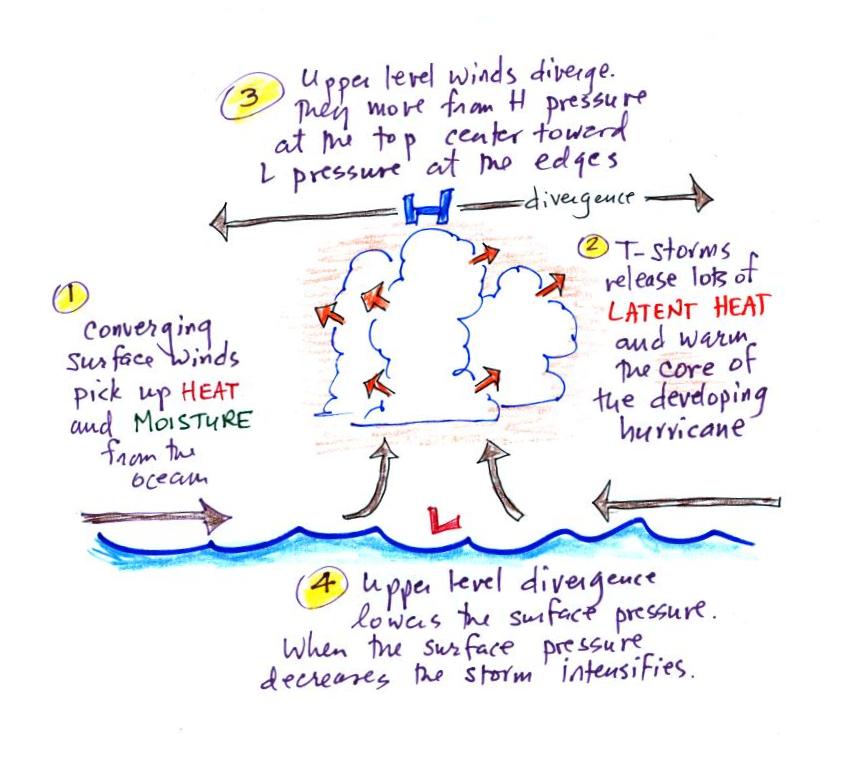 3 Upper level winds diverge.
They move from H pressure
at the top center toward
L pressure at the edges
H
divergence
1
Converging
surface winds
pick up HEAT
and MOISTURE
from the
ocean
2 T-storms
release lots of
LATENT HEAT
and warm
the core of
the developing
hurricane
L
4 Upper level divergence
lowers the surface pressure.
When the surface pressure
decreases the storm intensifies.